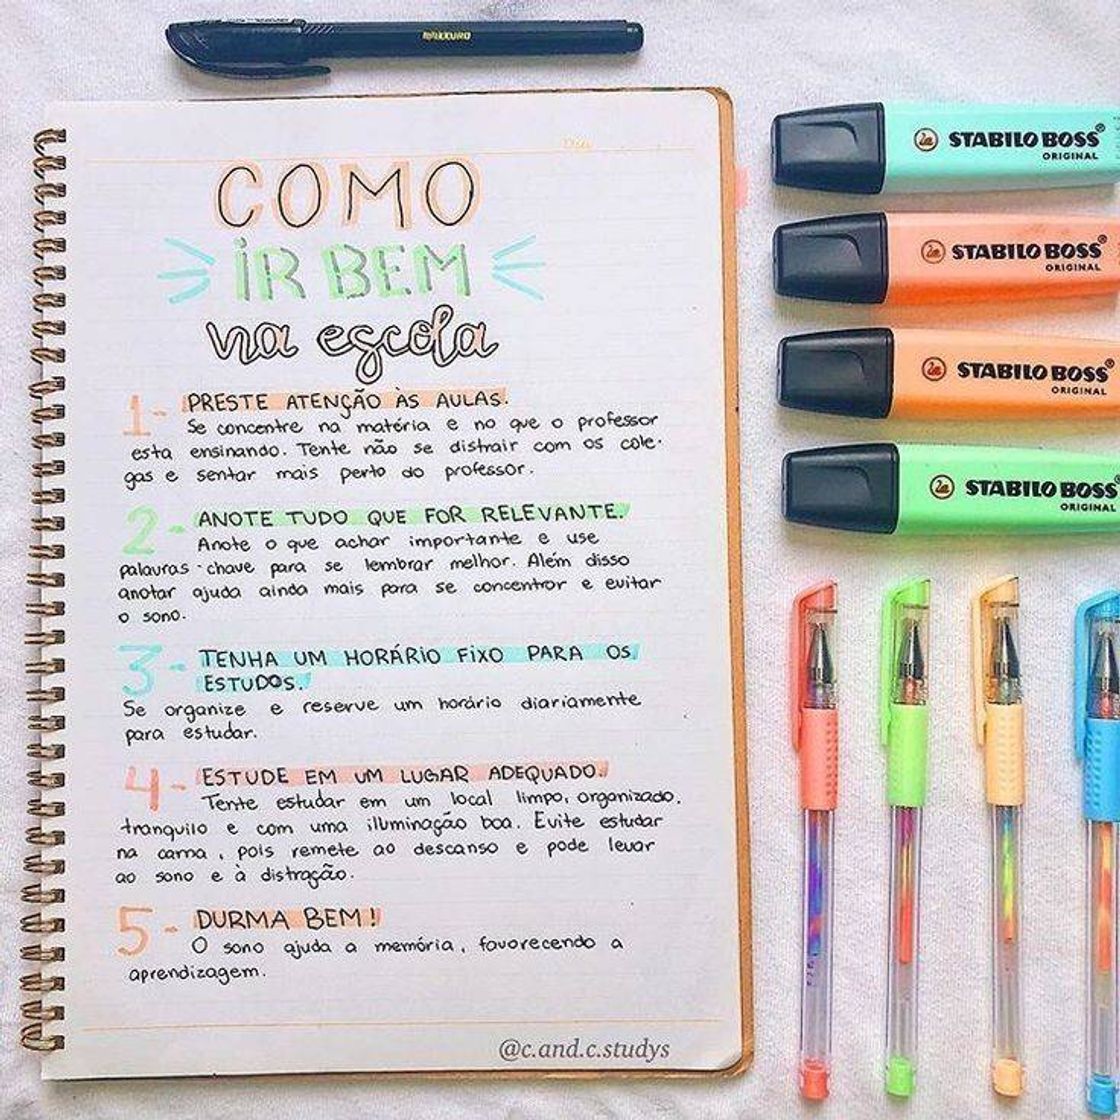 MAKKURO
Dia
COMO
iR BEM
na escola
1- PRESTE ATENÇÃO ÀS AULAS.
Se concentre na matéria e no que o professor
esta ensinando. Tente não se distrair com os cole-
gas e sentar mais perto do professor.
2- ANOTE TUDO QUE FOR RELEVANTE.
Anote o que achar importante e use
palavras-chave para se lembrar melhor. Além disso
anotar ajuda ainda mais para se concentrar e evitar
o sono.
3- TENHA UM HORÁRIO FIXO PARA OS
ESTUDOS.
Se organize e reserve um horário diariamente
para estudar.
4- ESTUDE EM UM LUGAR ADEQUADO.
Tente estudar em um local limpo, organizado,
tranquilo e com uma iluminação boa. Evite estudar
na cama, pois remete ao descanso e pode levar
ao sono e à distração.
5- DURMA BEM!
O sono ajuda a memória, favorecendo a
aprendizagem.
@c.and.c.studys
STABILO BOSS®
ORIGINAL
STABILO BOSS®
ORIGINAL
STABILO BOSS®
ORIGINAL
STABILO BOSS®
ORIGINAL